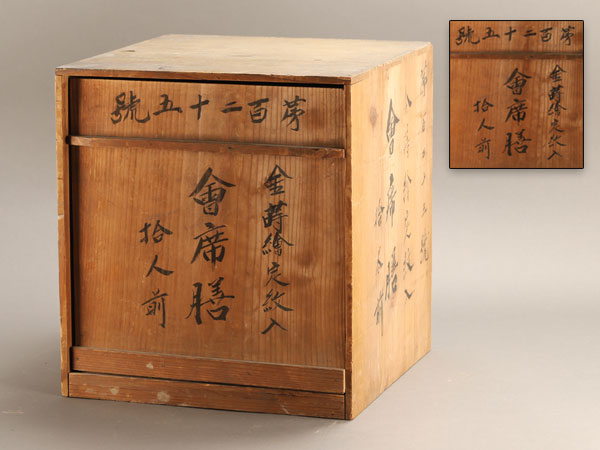 第百二十五號
金蒔繪定紋入
會席膳
拾人前
第百二十五號
金蒔繪定紋入
會席膳
拾人前
第百二十五號
金蒔繪定紋入
會席膳
拾人前